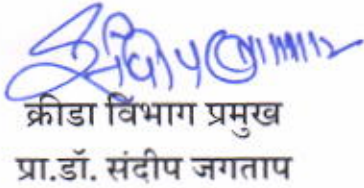 क्रीडा विभाग प्रमुख
प्रा.डॉ. संदीप जगताप